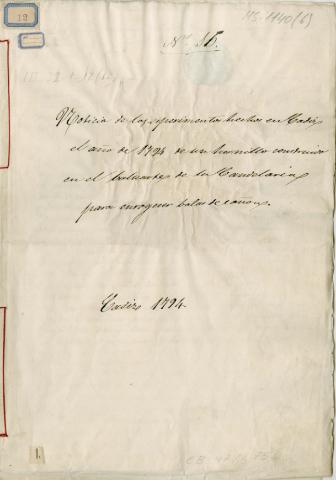 12
MS. 1140 (6)
Nº 36.
Noticia de los esperimentos hechos en Cadiz
el año de 1794 de un hornillo construido
en el baluarte de la Candelaria
para enrogecer balas de cañon.
Cadiz 1794.
1.